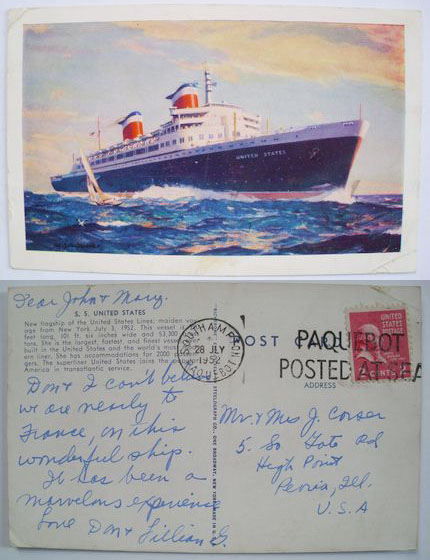 UNITED STATES
Dear John & Mary.
S. S. UNITED STATES
New flagship of the United States Lines; maiden voy-
age from New York July 3, 1952. This vessel is
feet long, 101 ft. six inches wide and 53,300
tons. She is the largest, and finest vessel
built in the United States and the world's
ern liner. She has accommodations for 2000
gers. The superliner United States joins the
America in transatlantic service.
Don & I can't believe
we are nearly to
France, on this
wonderful ship.
It has been a
marvelous experience
Love Don & Lillian G.
SOUTHAMPTON
28 JLY
1952
PAQUEBOT
POST CARD
PAQUEBOT
POSTED AT SEA
ADDRESS
Mr. & Mrs J. Corser
5. So Foto Rd
High Point
Peoria, Ill.
U.S.A
UNITED STATES